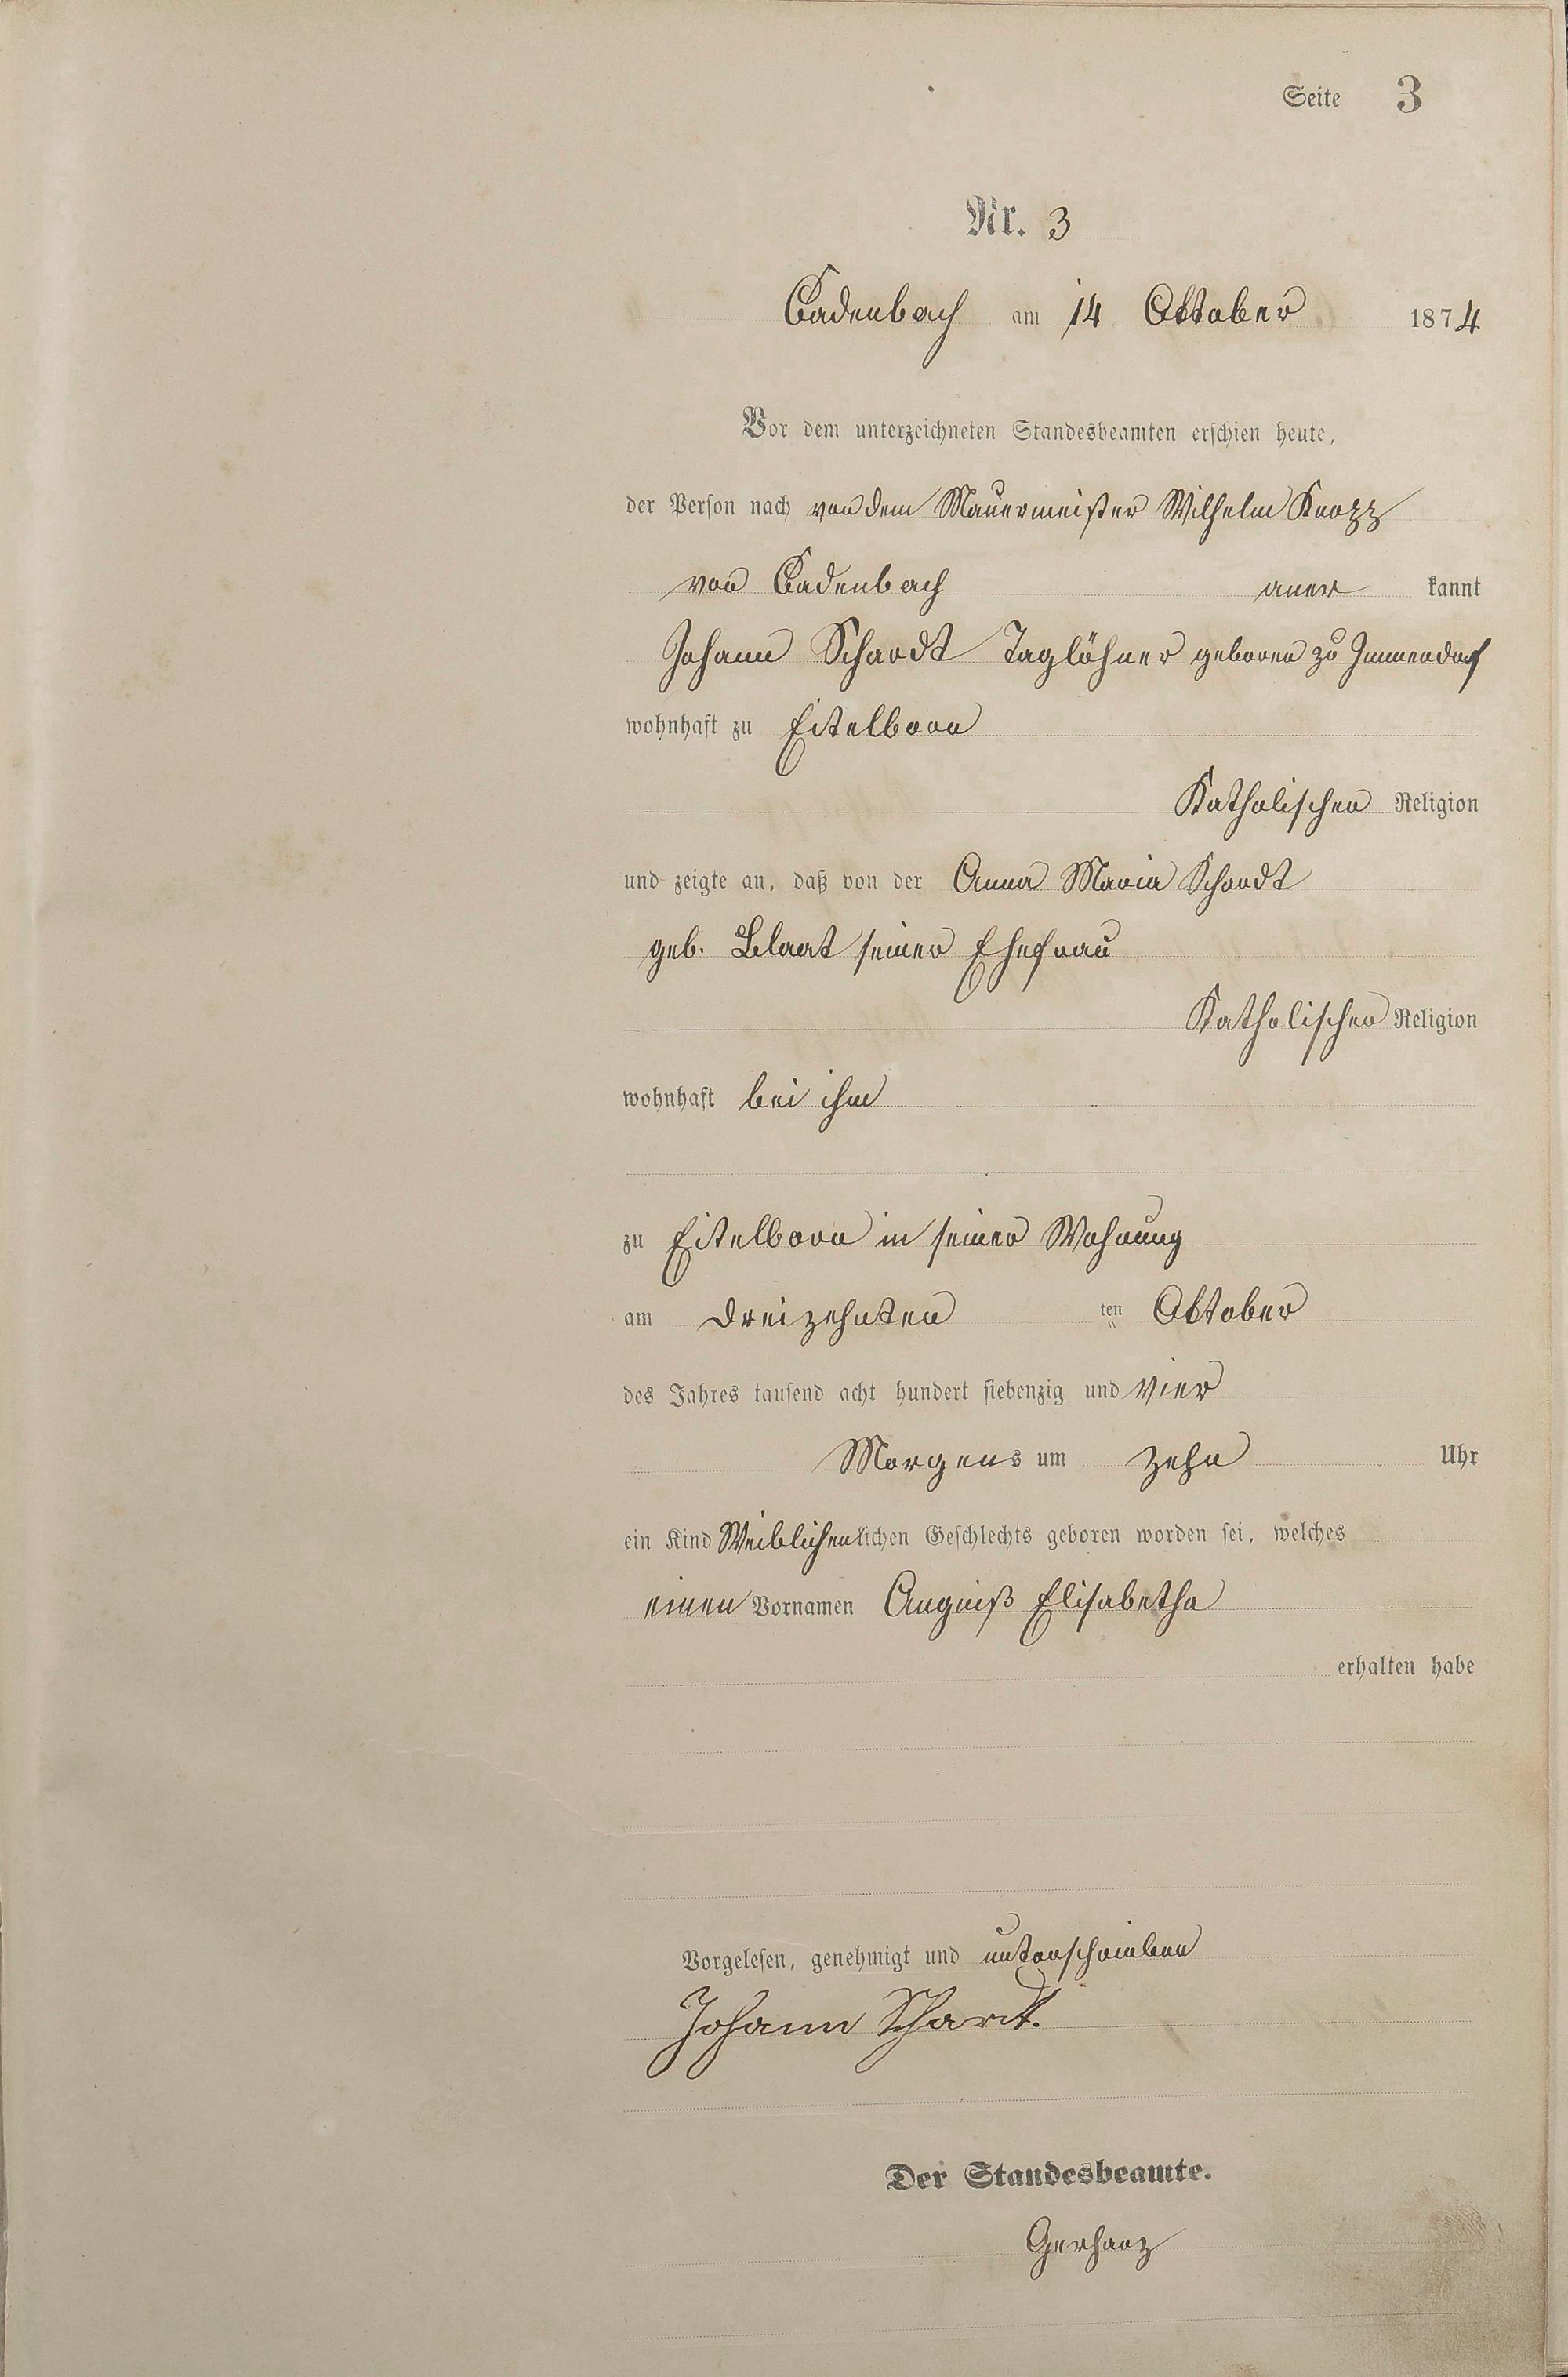 Seite 3
Nr. 3
Cadenbach am 14 Oktober 1874
Vor dem unterzeichneten Standesbeamten erschien heute,
der Person nach von dem Mauermeister Wilhelm Knopp
von Cadenbach aner kannt
Johann Schardt Taglöhner geboren zu Immendorf
wohnhaft zu Eitelborn
Katholischer Religion
und zeigte an, daß von der Anna Maria Schardt
geb. seiner Ehefrau
Katholischer Religion
wohnhaft bei ihm
zu Eitelborn in seiner Wohnung
am Dreizehnten ten Oktober
des Jahres tausend acht hundert siebenzig und Vier
Morgens um Zehn Uhr
ein Kind Weiblichen lichen Geschlechts geboren worden sei, welches
einen Vornamen Angniß Elisabetha
erhalten habe
Vorgelesen, genehmigt und unterschrieben
Johann Schardt.
Der Standesbeamte.
Gerharz